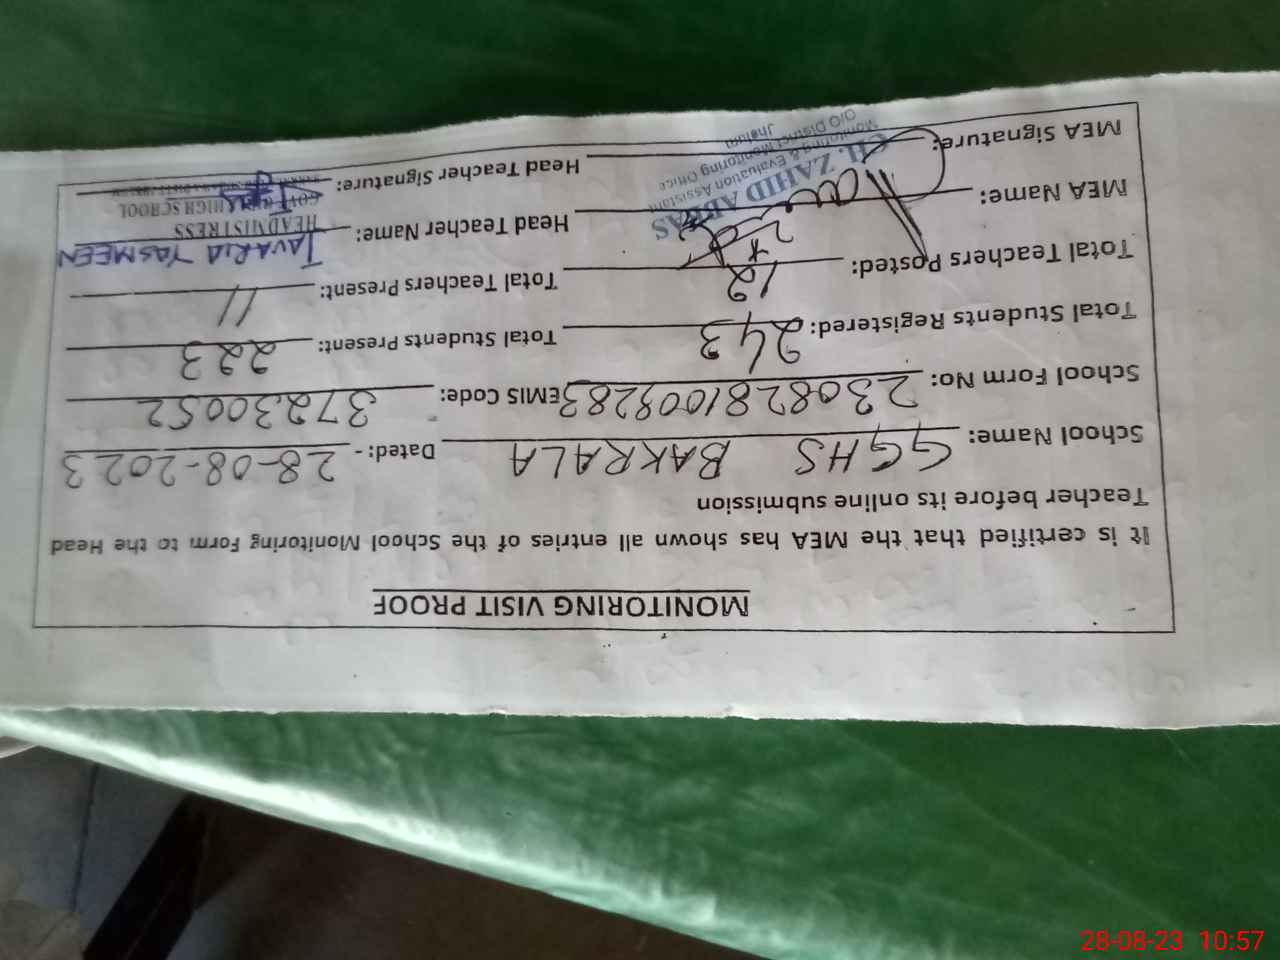 MONITORING VISIT PROOF
It is certified that the MEA has shown all entries of the School Monitoring Form to the Head
Teacher before its online submission
School Name: GGHS BAKRALA Dated: - 28-08-2023
School Form No: 2308281009283 EMIS Code: 37230052
Total Students Registered: 243 Total Students Present: 223
Total Teachers Posted: 12 Total Teachers Present: 11
MEA Name: Head Teacher Name: TAVARIA YASMEEN
HEADMISTRESS
HIGH SCHOOL
MEA Signature: Head Teacher Signature:
CH. ZAHID ABBAS
Monitoring & Evaluation Assistant
O/O District Monitoring Office
Jhelum
28-08-23 10:57